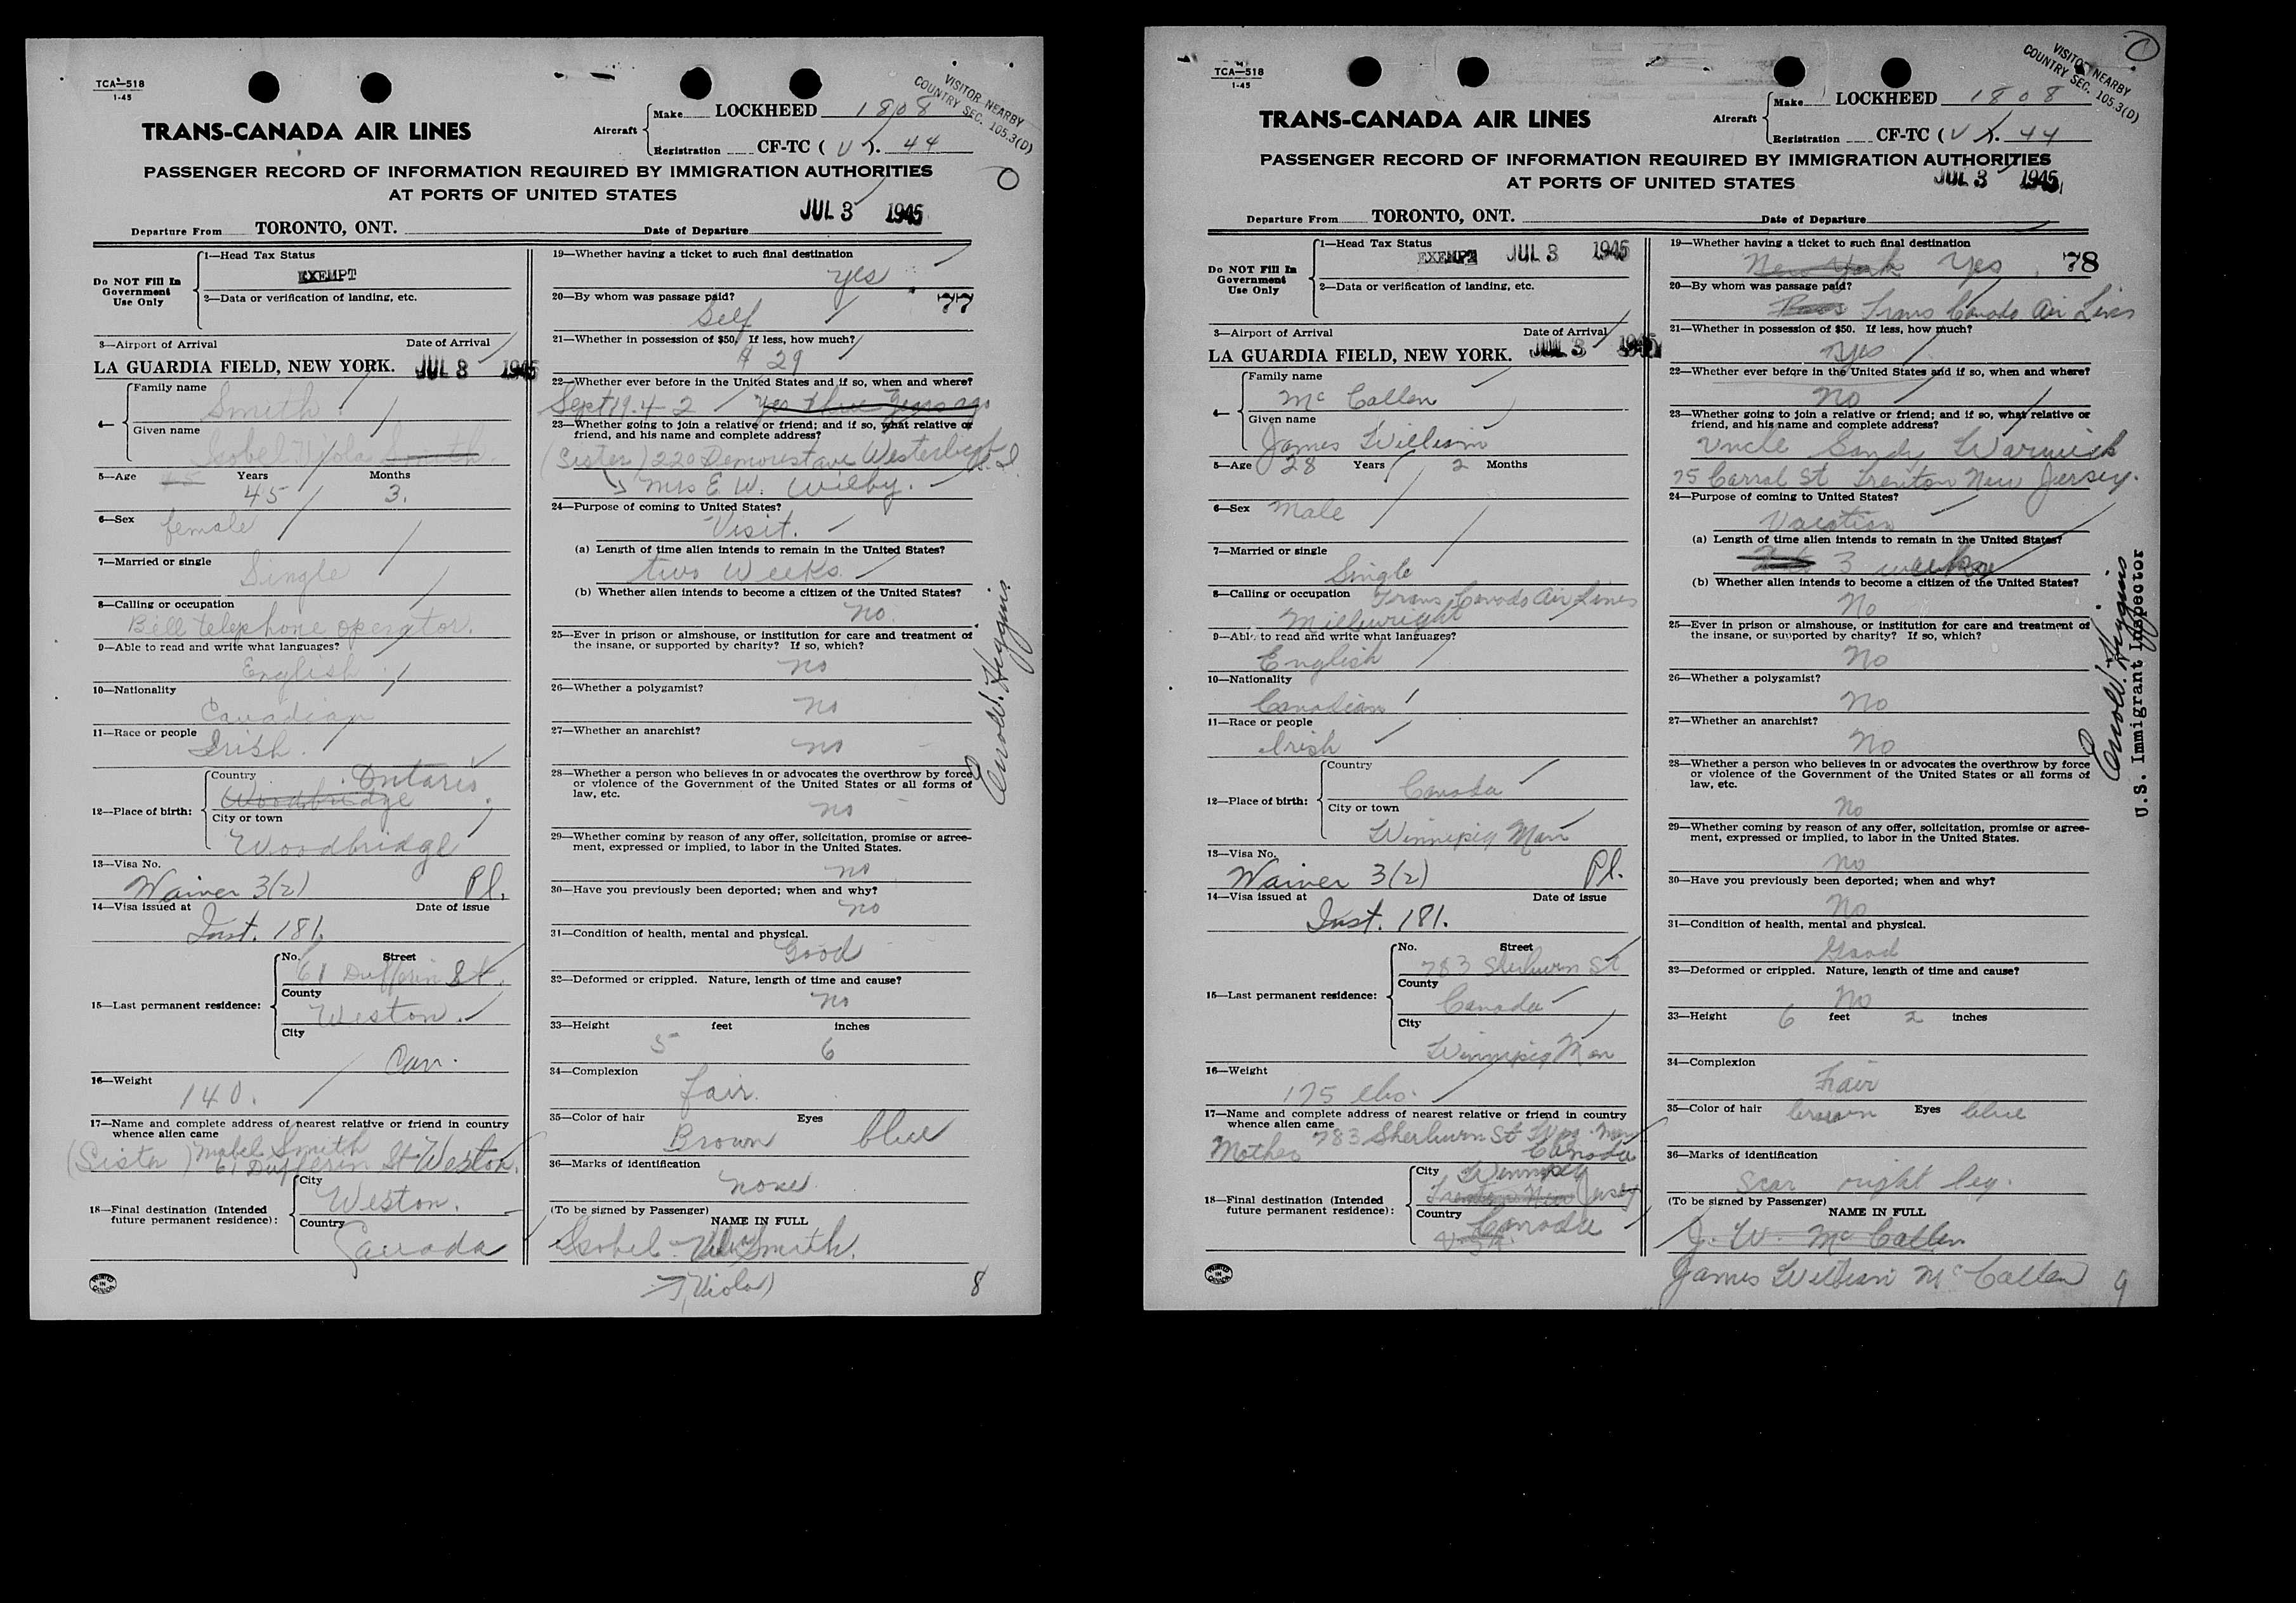 TCA—518
1-45
TRANS-CANADA AIR LINES
Aircraft
Make LOCKHEED 1808
Registration CF-TC ( V ). 44
VISITOR NEARBY
COUNTRY SEC. 105.3(D)
PASSENGER RECORD OF INFORMATION REQUIRED BY IMMIGRATION AUTHORITIES
AT PORTS OF UNITED STATES
JUL 3 1945
Departure From TORONTO, ONT. Date of Departure
Do NOT Fill In
Government
Use Only
1—Head Tax Status
EXEMPT
2—Data or verification of landing, etc.
3—Airport of Arrival Date of Arrival
LA GUARDIA FIELD, NEW YORK. JUL 3 1945
4—
Family name
Smith
Given name
Isobel Viola Smith
5—Age Years Months
45 3.
6—Sex
female
7—Married or single
Single
8—Calling or occupation
Bell telephone operator.
9—Able to read and write what languages?
English
10—Nationality
Canadian
11—Race or people
Irish.
12—Place of birth:
Country
Ontario
Woodbridge
City or town
Woodbridge
13—Visa No.
Waiver 3(2) Pl.
14—Visa issued at Date of issue
Inst. 181.
15—Last permanent residence:
No. Street
61 Dufferin St.
County
Weston.
City
Can.
16—Weight
140.
17—Name and complete address of nearest relative or friend in country
whence alien came
(Sister) Mabel Smith
61 Dufferin St Weston.
18—Final destination (Intended
future permanent residence):
City
Weston.
Country
Canada
PRINTED
IN
CANADA
19—Whether having a ticket to such final destination
yes
77
20—By whom was passage paid?
Self
21—Whether in possession of $50. If less, how much?
$ 29
22—Whether ever before in the United States and if so, when and where?
Sept 19.42 yes three years ago
23—Whether going to join a relative or friend; and if so, what relative or
friend, and his name and complete address?
(Sister) 220 Demorest ave
Mrs E. W. Wilby.
24—Purpose of coming to United States?
Visit.
(a) Length of time alien intends to remain in the United States?
two weeks.
(b) Whether alien intends to become a citizen of the United States?
no.
25—Ever in prison or almshouse, or institution for care and treatment of
the insane, or supported by charity? If so, which?
no
26—Whether a polygamist?
no
27—Whether an anarchist?
no
28—Whether a person who believes in or advocates the overthrow by force
or violence of the Government of the United States or all forms of
law, etc.
no
29—Whether coming by reason of any offer, solicitation, promise or agree-
ment, expressed or implied, to labor in the United States.
no
30—Have you previously been deported; when and why?
no
31—Condition of health, mental and physical.
Good
32—Deformed or crippled. Nature, length of time and cause?
no
33—Height feet inches
5 6
34—Complexion
fair.
35—Color of hair Eyes
Brown blue
36—Marks of identification
none
(To be signed by Passenger)
NAME IN FULL
Isobel Smith.
(Viola)
8
TCA—518
1-45
TRANS-CANADA AIR LINES
Aircraft
Make LOCKHEED 1808
Registration CF-TC ( V ). 44
VISITOR NEARBY
COUNTRY SEC. 105.3(D)
PASSENGER RECORD OF INFORMATION REQUIRED BY IMMIGRATION AUTHORITIES
AT PORTS OF UNITED STATES
JUL 3 1945
Departure From TORONTO, ONT. Date of Departure
Do NOT Fill In
Government
Use Only
1—Head Tax Status
EXEMPT JUL 3 1945
2—Data or verification of landing, etc.
3—Airport of Arrival Date of Arrival
LA GUARDIA FIELD, NEW YORK. JUL 3 1945
4—
Family name
Mc Callen
Given name
James William
5—Age 28 Years 2 Months
6—Sex Male
7—Married or single
Single
8—Calling or occupation Trans Canada Air Lines
Millwright
9—Able to read and write what languages?
English
10—Nationality
Canadian
11—Race or people
Irish
12—Place of birth:
Country
Canada
City or town
Winnipeg Man
13—Visa No.
Waiver 3(2) Pl.
14—Visa issued at Date of issue
Inst. 181.
15—Last permanent residence:
No. Street
783 Sherburn St
County
Canada
City
Winnipeg Man
16—Weight
175 lbs.
17—Name and complete address of nearest relative or friend in country
whence alien came
Mother 783 Sherburn St Wpg. Man
Canada
18—Final destination (Intended
future permanent residence):
City Winnipeg
Trenton New Jersey
Country
Canada
PRINTED
IN
CANADA
19—Whether having a ticket to such final destination
New York Yes 78
20—By whom was passage paid?
Trans Canada Air Lines
21—Whether in possession of $50. If less, how much?
Yes
22—Whether ever before in the United States and if so, when and where?
No
23—Whether going to join a relative or friend; and if so, what relative or
friend, and his name and complete address?
Uncle Sandy Warwick
75 Carral St Trenton New Jersey.
24—Purpose of coming to United States?
Vacation
(a) Length of time alien intends to remain in the United States?
3 weeks
(b) Whether alien intends to become a citizen of the United States?
No
25—Ever in prison or almshouse, or institution for care and treatment of
the insane, or supported by charity? If so, which?
No
26—Whether a polygamist?
No
27—Whether an anarchist?
No
28—Whether a person who believes in or advocates the overthrow by force
or violence of the Government of the United States or all forms of
law, etc.
No
29—Whether coming by reason of any offer, solicitation, promise or agree-
ment, expressed or implied, to labor in the United States.
No
30—Have you previously been deported; when and why?
No
31—Condition of health, mental and physical.
Good
32—Deformed or crippled. Nature, length of time and cause?
No
33—Height 6 feet 2 inches
34—Complexion
Fair
35—Color of hair brown Eyes blue
36—Marks of identification
Scar right leg.
(To be signed by Passenger)
NAME IN FULL
J. W. Mc Callen
James William Mc Callen
9
U.S. Immigrant Inspector